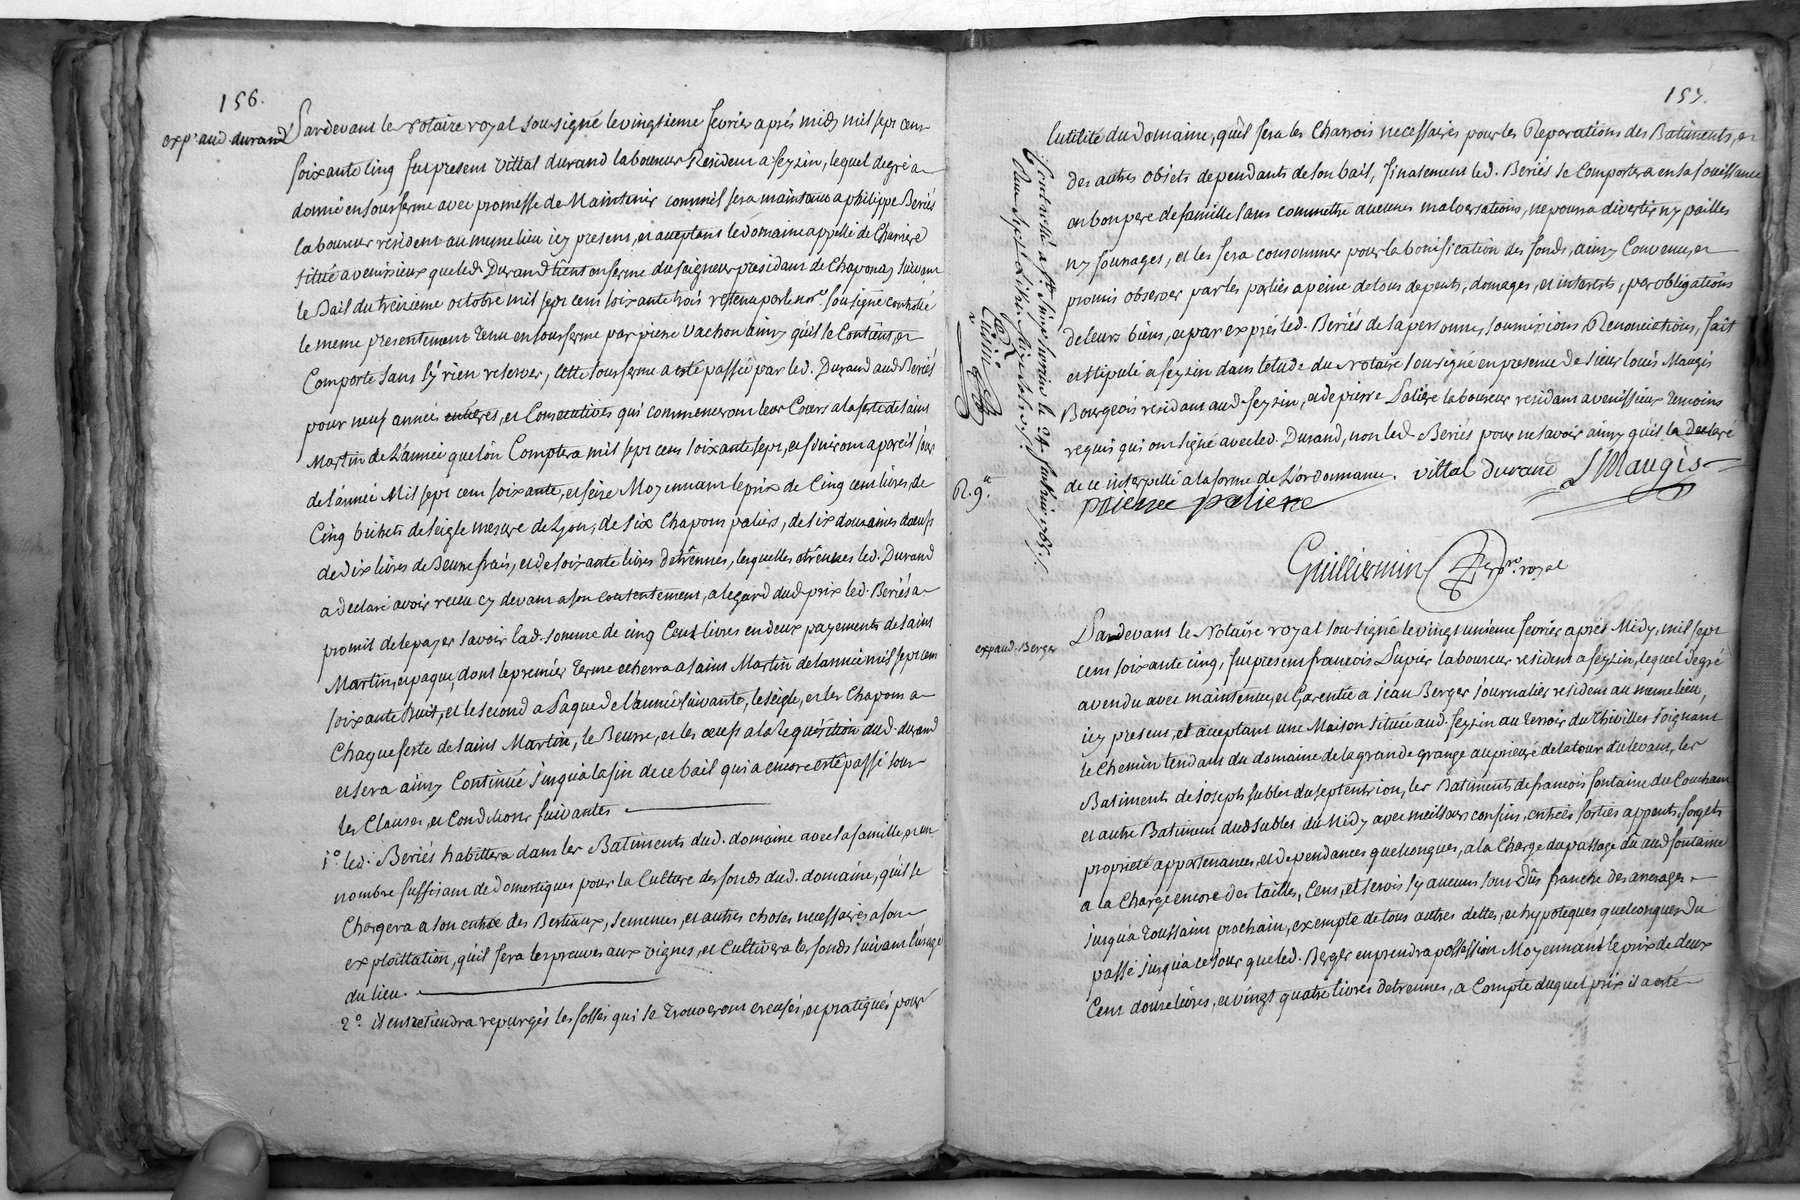 156.
exp. aud durand
Pardevant le Notaire royal sousigné le vingtieme fevrier aprés midy mil sept cent
soixante cinq fut present vittal durand laboureur Resident a feyzin, lequel de gré a
donné en sousferme avec promesse de Maintenir comme il sera maintenu a philippe Beriés
laboureur résident au meme lieu icy present, et acceptant le domaine appellé de Charriere
situé a venissieux que led. Durand tient en ferme du seigneur president de Chaponay suivant
le Bail du treizieme octobre mil sept cent soixante trois retenu par le nore. sousigné controllé
le meme presentement tenu en sousferme par pierre Vachon ainsy qu'il se Contient, et
Comporte sans sy rien reserver, cette sousferme a eté passée par led. Durand aud Beriés
pour neuf année entieres, et Consecutives qui commenceront leur Cours a la feste de saint
Martin de L'année que lón Comptera mil sept cent soixante sept, et finiront a pareil jour
de l'année Mil sept cent soixante, et seize Moyennant le prix de Cinq cent livres, de
Cinq bichets de seigle mesure de Lyon, de six Chapons paliers, de six douzaines d'oeufs
de dix livres de Beurre frais, et de soixante livres d'etrennes, lesquelles etrennes led. Durand
a declaré avoir receu cy devant a son contentement, a legard dud prix led. Beriés a
promis de le payer savoir lad. somme de cinq Cent livres en deux payements de saint
Martin, et paque, dont le premier terme echerra a saint Martin de lannée mil sept cent
soixante huit, et le second a Paque de l'année suivante, le seigle, et les Chapons a
Chaque feste de saint Martin, le Beurre, et les oeufs a la requisition dud. durand
et sera ainsy Continué jusqu'a la fin de ce bail qui a encore esté passé sous
les Clauses, et Conditions suivantes
1o. led. Beriés habittera dans les Batiments dud. domaine avec sa famille, et un
nombre suffisant de domestiques pour la Culture des fonds dud. domaine, qu'il se
Chargera a son entrée des Bestiaux, semences, et autres choses necessaires a son
exploittation, qu'il fera les preuves aux vignes, et Cultivera les fonds suivant l'usage
du lieu.
2o. il entretiendra repurgés les fossés qui se trouveront creusés, et pratiqués pour
157.
lutilité du domaine, qu'il fera les Charrois necessaires pour les Reparations des Batiments, et
des autres objets dependants de son bail, finalement led. Beriés se Comportera en sa jouissance
en bon pere de famille sans commettre aucunes malversations, ne pourra divertir ny pailles
ny fourages, et les fera consommer pour la bonification des fonds, ainsy Convenu, et
promis observer par les parties a peine de tous depents, domages, et interests, par obligations
de leurs biens, et par exprés led. Beriés de sa personne, soumissions, Renonciations, fait
et stipulé a feyzin dans létude du Notaire sousigné en presence de sieur louis Maugis
Bourgeois résidant aud. feyzin, et de pierre Paliere laboureur résidant a venissieux temoins
requis qui ont signé avec led. Durand, non led. Beriés pour ne savoir ainsy qu'il la declaré
de ce interpellé a la forme de L'ordonnance. vittal durand L Maugis
pierre paliere
Guilliermin nore. royal
R. 9tt.
exp aud. Berger
Pardevant le Notaire royal sousigné le vingt unieme fevrier aprés Midy, mil sept
cent soixante cinq, fut present francois Lupier laboureur resident a feyzin, lequel de gré
a vendu avec maintenue, et Garentie a jean Berger journalier resident au meme lieu,
icy present, et acceptant une Maison située aud. feyzin au terroir du Thivilles joignant
le Chemin tendant du domaine de la grande grange au prieuré de la tour du levant, les
Batiments de joseph sublet du septentrion, les Batiments de francois fontaine du Couchant
et autre Batiment dud sublet du Midy avec meilleurs confins, entrées sorties appents, forgets
proprieté appartenances, et dependances quelconques, a la Charge du passage dû aud fontaine
a la Charge encore des tailles, Cens, et servis sy aucuns sont Dûs franche des arrerages
jusqu'a toussaint prochain, exempte de tous autres dettes, et hypoteques quelconques du
passé jusqu'a ce jour que led. Berger en prendra possession Moyennant le prix de deux
Cent douze livres, et vingt quatre livres détrennes, a Compte duquel prix il a esté